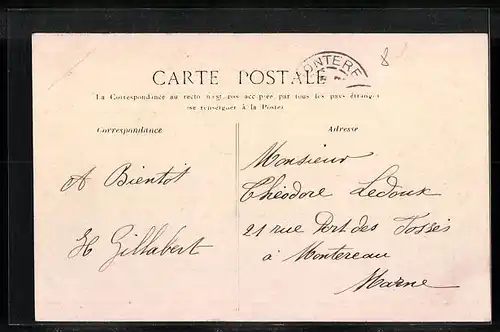 MONTERE
8
CARTE POSTALE
La Correspondance au recto n'est pas acceptée par tous les pays étrangers
(se renseigner à la Poste)
Correspondance
Adresse
A Bientôt
H Gillabert
Monsieur
Théodore Ledoux
21 rue Port des Fossés
à Montereau
Marne